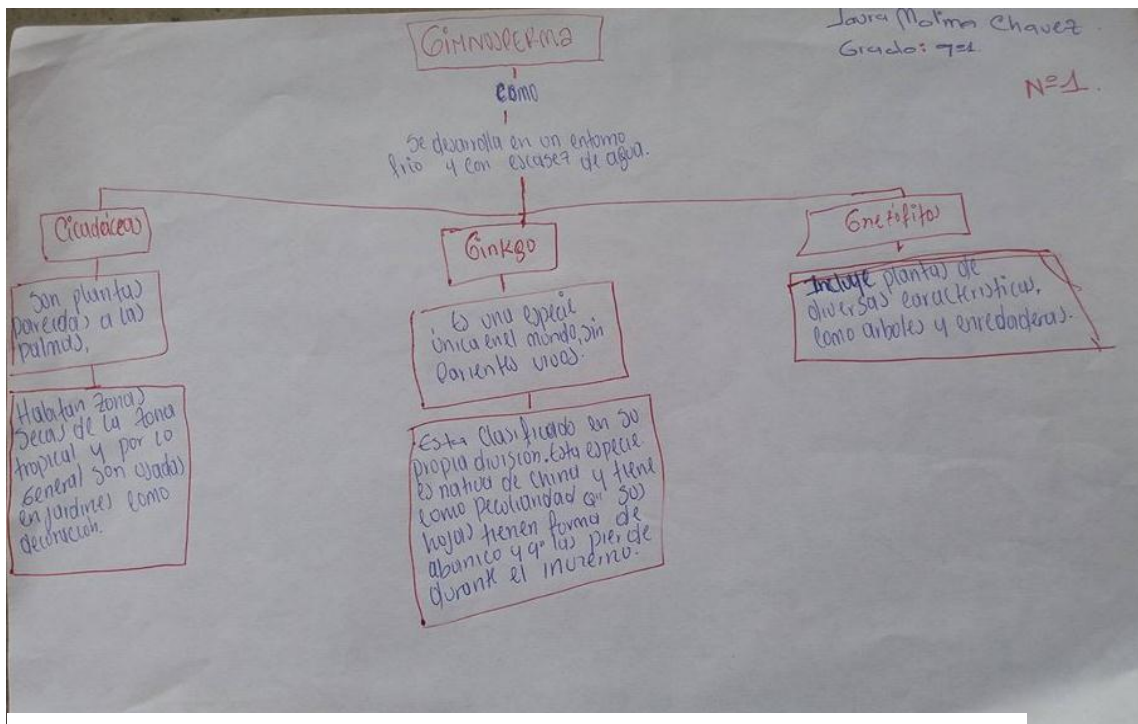 Gimnosperma
Laura Molina Chavez.
Grado: 7=1
Nº1.
como
Se desarrolla en un entorno
frio y con escasez de agua.
Cicadáceas
Ginkgo
Gnetófitos
Son plantas
parecidas a las
palmas,
Habitan zonas
secas de la zona
tropical y por lo
general son usadas
en jardines como
decoración.
Es una especie
única en el mundo, sin
parientes vivos.
Esta clasificado en su
propia división. Esta especie
es nativa de China y tiene
como peculiaridad qu sus
hojas tienen forma de
abanico y q' las pierde
durante el invierno.
Incluye plantas de
diversas caracteristicas,
como arboles y enredaderas.